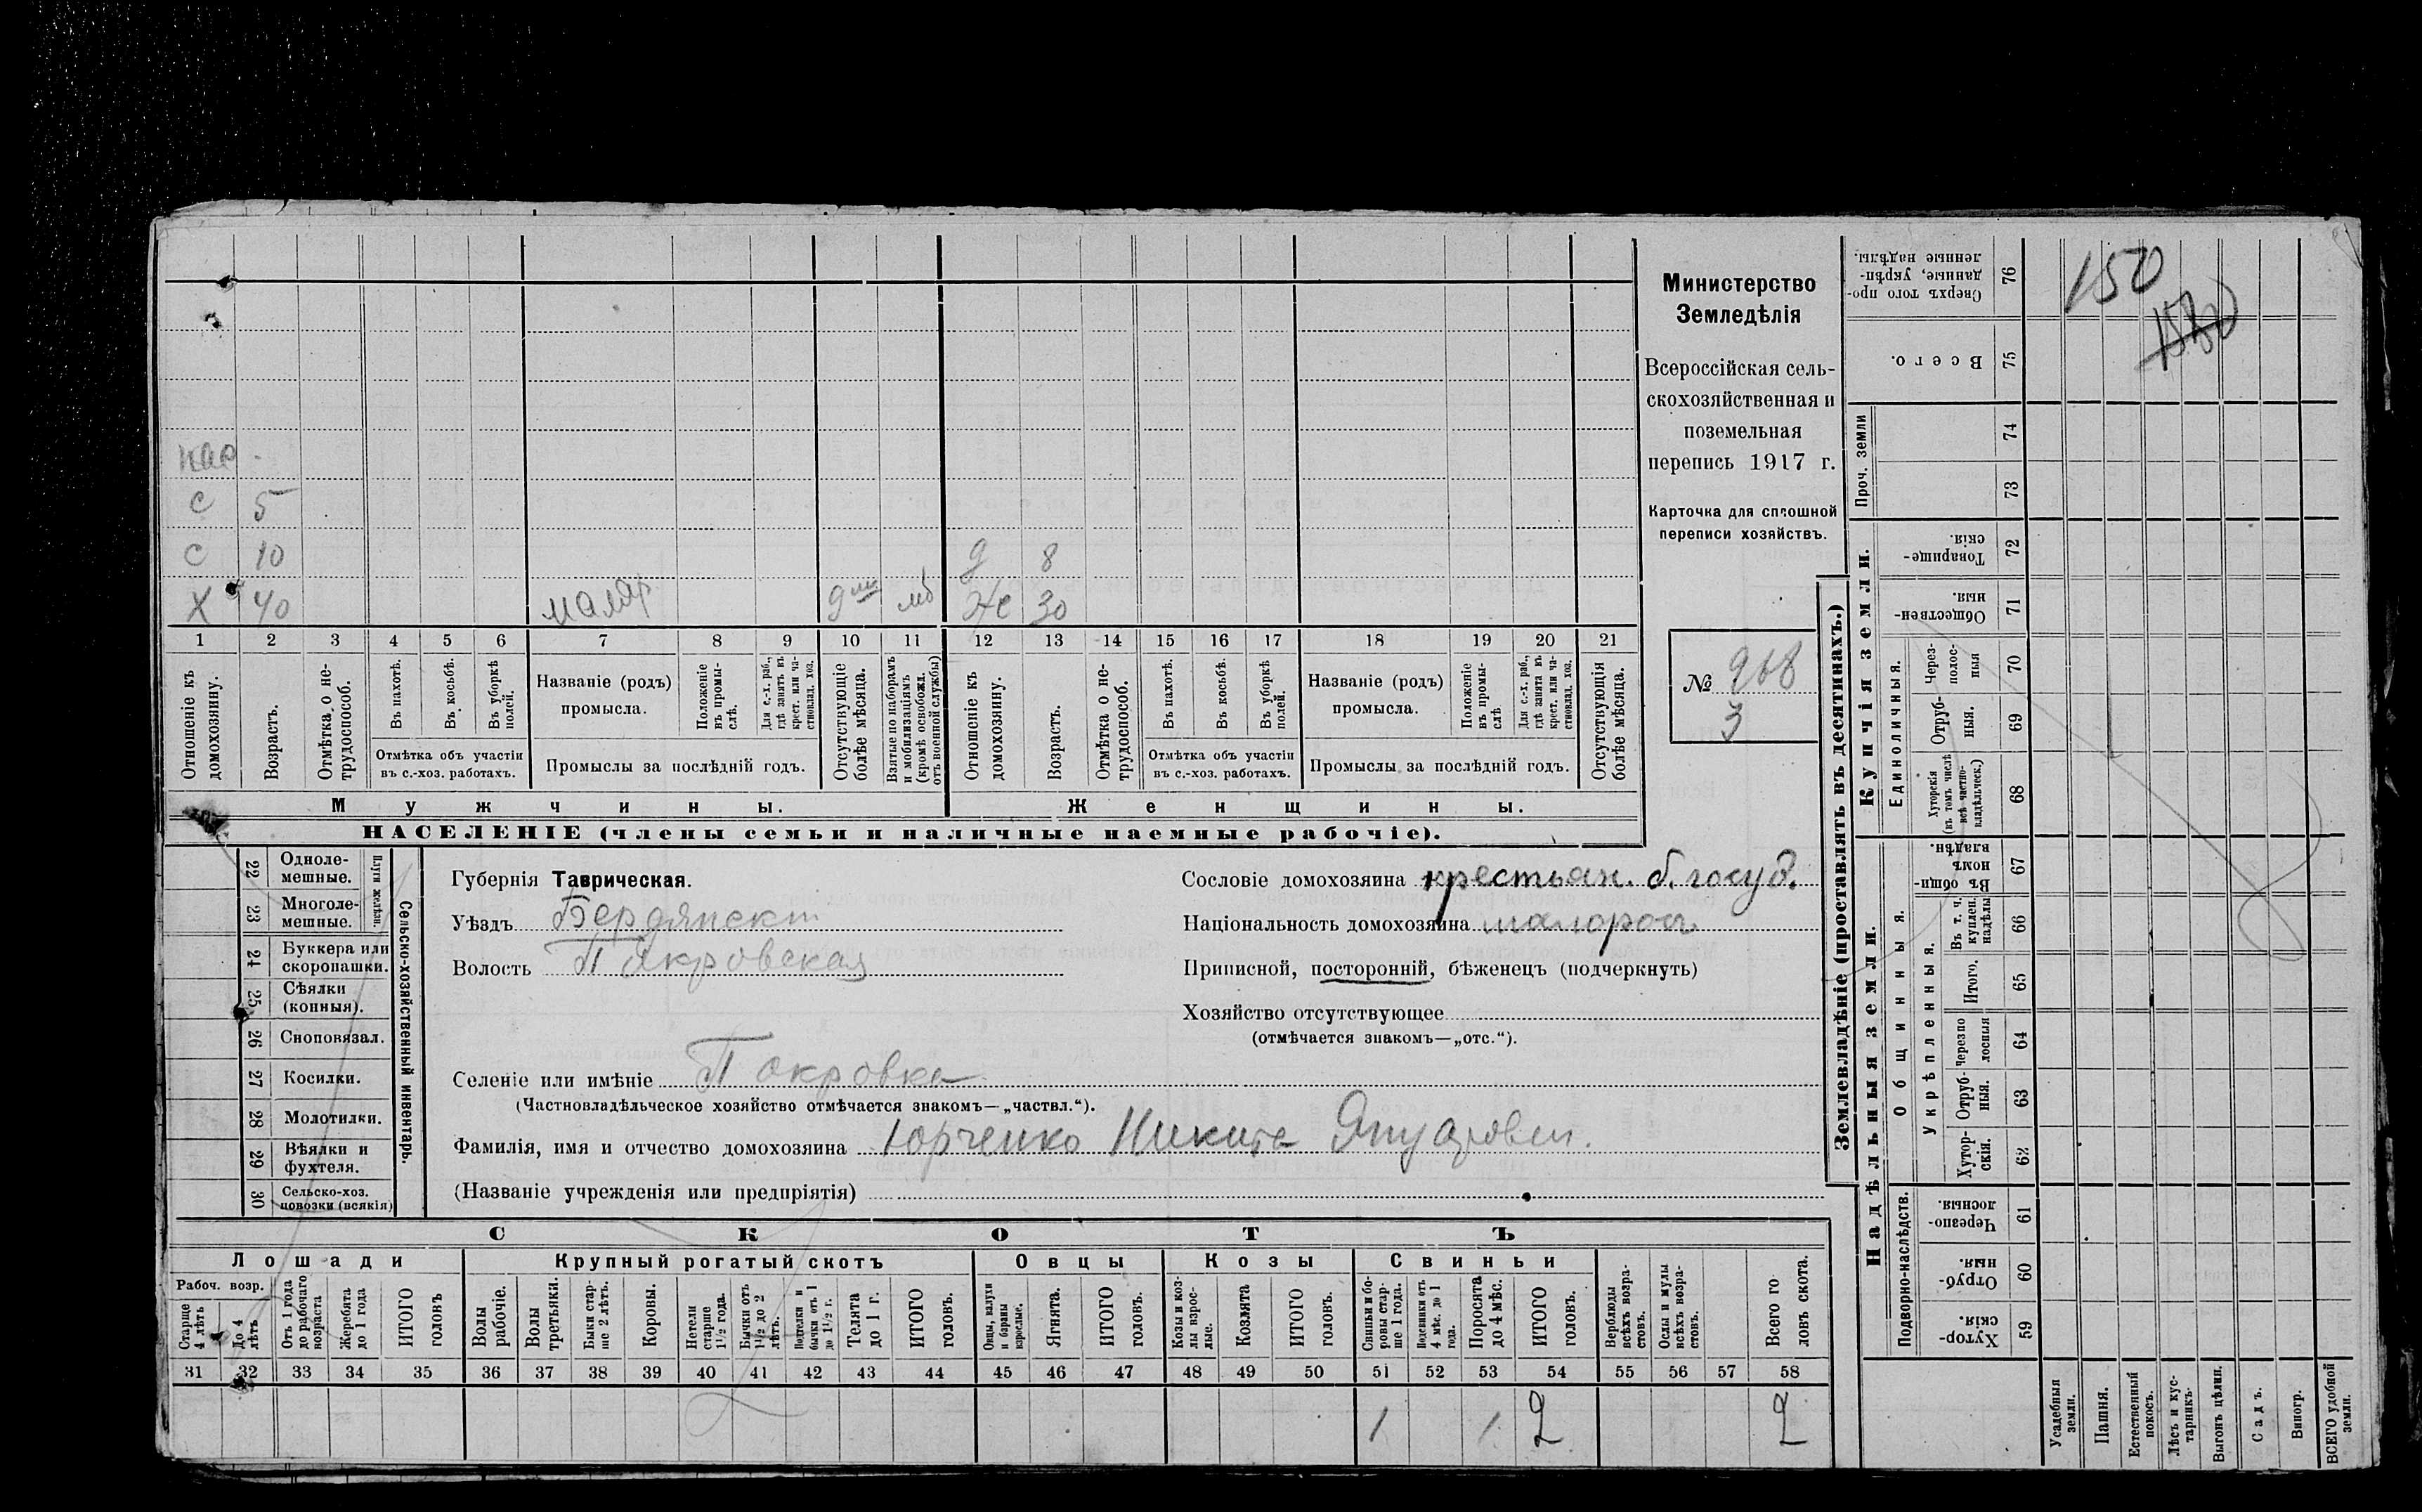 Министерство
Земледѣлія
Всероссійская сель-
скохозяйственная и
поземельная
перепись 1917 г.
Карточка для сплошной
переписи хозяйствъ.
№ 968
3
150
нар.
с 5
с 10 д 8
х 40 маляр 9 мб Же 30
1 2 3 4 5 6 7 8 9 10 11 12 13 14 15 16 17 18 19 20 21
Отношеніе къ домохозяину.
Возрастъ.
Отмѣтка о не-трудоспособ.
Въ пахотѣ.
Въ косьбѣ.
Въ уборкѣ полей.
Отмѣтка объ участіи
въ с.-хоз. работахъ.
Названіе (родъ)
промысла.
Положеніе въ промы-слѣ.
Для с.-х. раб., гдѣ занятъ въ крест. или ча-стновлад. хоз.
Промыслы за послѣдній годъ.
Отсутствующіе болѣе мѣсяца.
Взятые по наборамъ и мобилизаціямъ (кромѣ освобожд. отъ военной службы)
Отношеніе къ домохозяину.
Возрастъ.
Отмѣтка о не-трудоспособ.
Въ пахотѣ.
Въ косьбѣ.
Въ уборкѣ полей.
Отмѣтка объ участіи
въ с.-хоз. работахъ.
Названіе (родъ)
промысла.
Положеніе въ промы-слѣ
Для с.-х. раб., гдѣ занята въ крест. или ча-стновлад. хоз.
Промыслы за послѣдній годъ.
Отсутствующія болѣе мѣсяца.
Мужчины.
Женщины.
НАСЕЛЕНІЕ (члены семьи и наличные наемные рабочіе).
Сельско-хозяйственный инвентарь.
Плуги желѣзн.
22 Одноле-мешные.
23 Многоле-мешные.
24 Буккера или скоропашки.
25 Сѣялки (конныя).
26 Сноповязал.
27 Косилки.
28 Молотилки.
29 Вѣялки и фухтеля.
30 Сельско-хоз. повозки (всякія)
Губернія Таврическая.
Уѣздъ Бердянскт
Волость Пакровская
Селеніе или имѣніе Покровка
(Частновладѣльческое хозяйство отмѣчается знакомъ—„частвл.“).
Фамилія, имя и отчество домохозяина Юрченко Никита
(Названіе учрежденія или предпріятія)
Сословіе домохозяина крестьян. б. госуд.
Національность домохозяина малорос
Приписной, посторонній, бѣженецъ (подчеркнуть)
Хозяйство отсутствующее
(отмѣчается знакомъ—„отс.“).
СКОТЪ
Лошади
Рабоч. возр.
Старше 4 лѣтъ
До 4 лѣтъ
Отъ 1 года до рабочаго возраста
Жеребята до 1 года
ИТОГО головъ
Крупный рогатый скотъ
Волы рабочіе.
Волы третьяки.
Быки стар-ше 2 лѣтъ.
Коровы.
Нетели старше 1½ года.
Бычки отъ 1½ до 2 лѣтъ.
бычки отъ 1 до 1½ г.
Телята до 1 г.
ИТОГО головъ.
Овцы
Овцы, валухи и бараны взрослые.
Ягнята.
ИТОГО головъ.
Козы
Козы и коз-лы взрос-лые.
Козлята
ИТОГО головъ.
Свиньи
Свиньи и бо-ровы стар-ше 1 года.
Подсвинки отъ 4 мѣс. до 1 года.
Поросята до 4 мѣс.
ИТОГО головъ.
Верблюды всѣхъ возра-стовъ.
Ослы и мулы всѣхъ возра-стовъ.
Всего го-ловъ скота.
31 32 33 34 35 36 37 38 39 40 41 42 43 44 45 46 47 48 49 50 51 52 53 54 55 56 57 58
1 1 2 2
Землевладѣніе (проставлять въ десятинахъ.)
Сверхъ того про-данные, укрѣп-ленные надѣлы. 76
Всего. 75
Проч. земли
74
73
Купчія земли.
Товарище-скія. 72
Обществен-ныя. 71
Единоличныя.
Через-полос-ныя 70
Отруб-ныя. 69
Хуторскія (въ томъ числѣ всѣ частно-владѣльческ.) 68
Надѣльныя земли.
Общинныя.
Въ общин-номъ владѣн. 67
Укрѣпленныя.
Въ т. ч. куплен. надѣлы 66
Итого. 65
Черезпо-лосныя 64
Отруб-ныя. 63
Хутор-скія. 62
Подворно-наслѣдств.
Черезпо-лосныя. 61
Отруб-ныя. 60
Хутор-скія. 59
Усадебныя земли.
Пашня.
Естественный покосъ.
Лѣсъ и кус-тарникъ.
Выгонъ цѣлин.
Садъ.
Виногр.
ВСЕГО удобной земли.